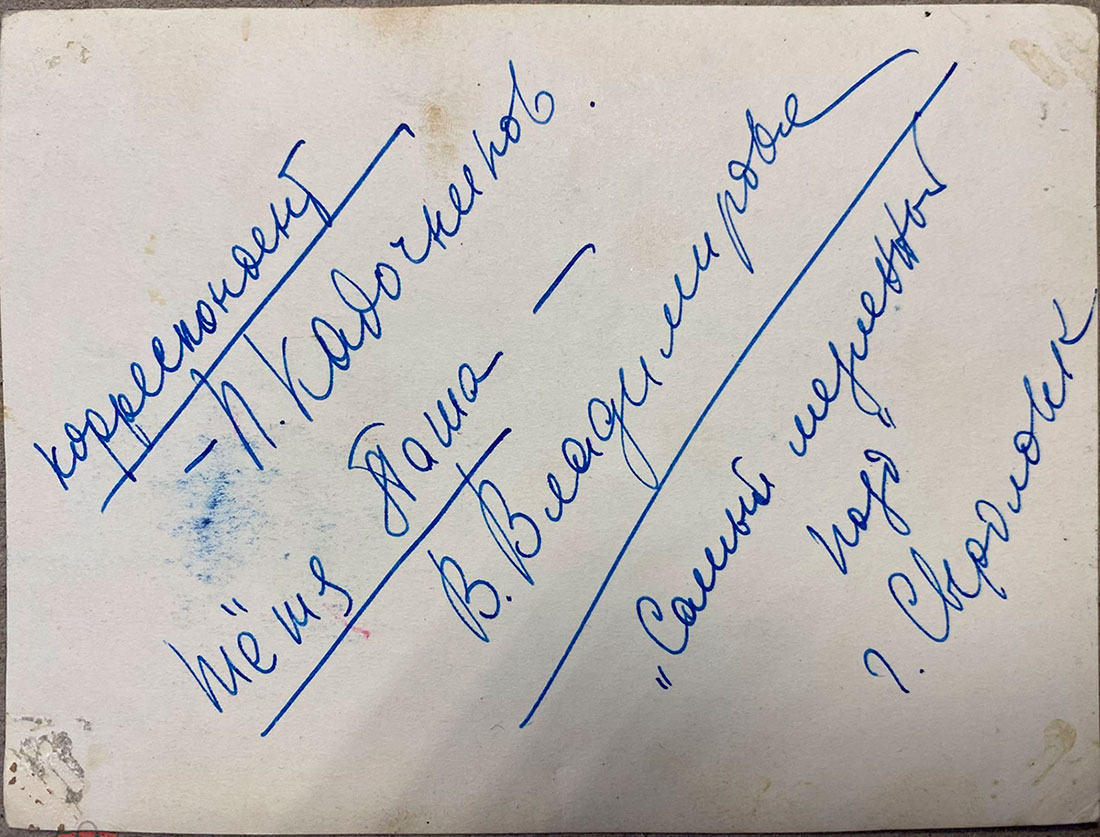 корреспондент
- П. Кадочников.
тётя Паша -
В. Владимирова
"Самый медленный
поезд"
г. Свердловск